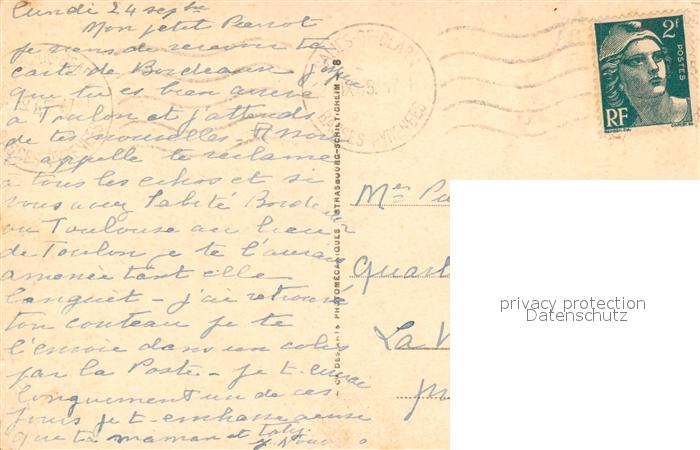 Lundi 24 septbre
Mon petit Pierrot
je viens de recevoir ta
carte de Bordeaux j'espère
que tu es bien arrivé
à Toulon et j'attends
de tes nouvelles
appelle te réclame
à tous les échos et si
vous aviez habité Bordeaux
ou Toulouse au lieu
de Toulon je te l'aurais
amenée tant elle
languit - j'ai retrouvé
ton couteau je te
l'envoie dans un colis
par la Poste - je t'écrirai
longuement un de ces
jours je t'embrasse ainsi
que ta maman et
PHOTOMÉCANIQUES STRASBOURG-SCHILTIGHEIM 8
BASSES-PYRÉNÉES
2F
POSTES
RF
Mer
Quart
La V
privacy protection
Datenschutz